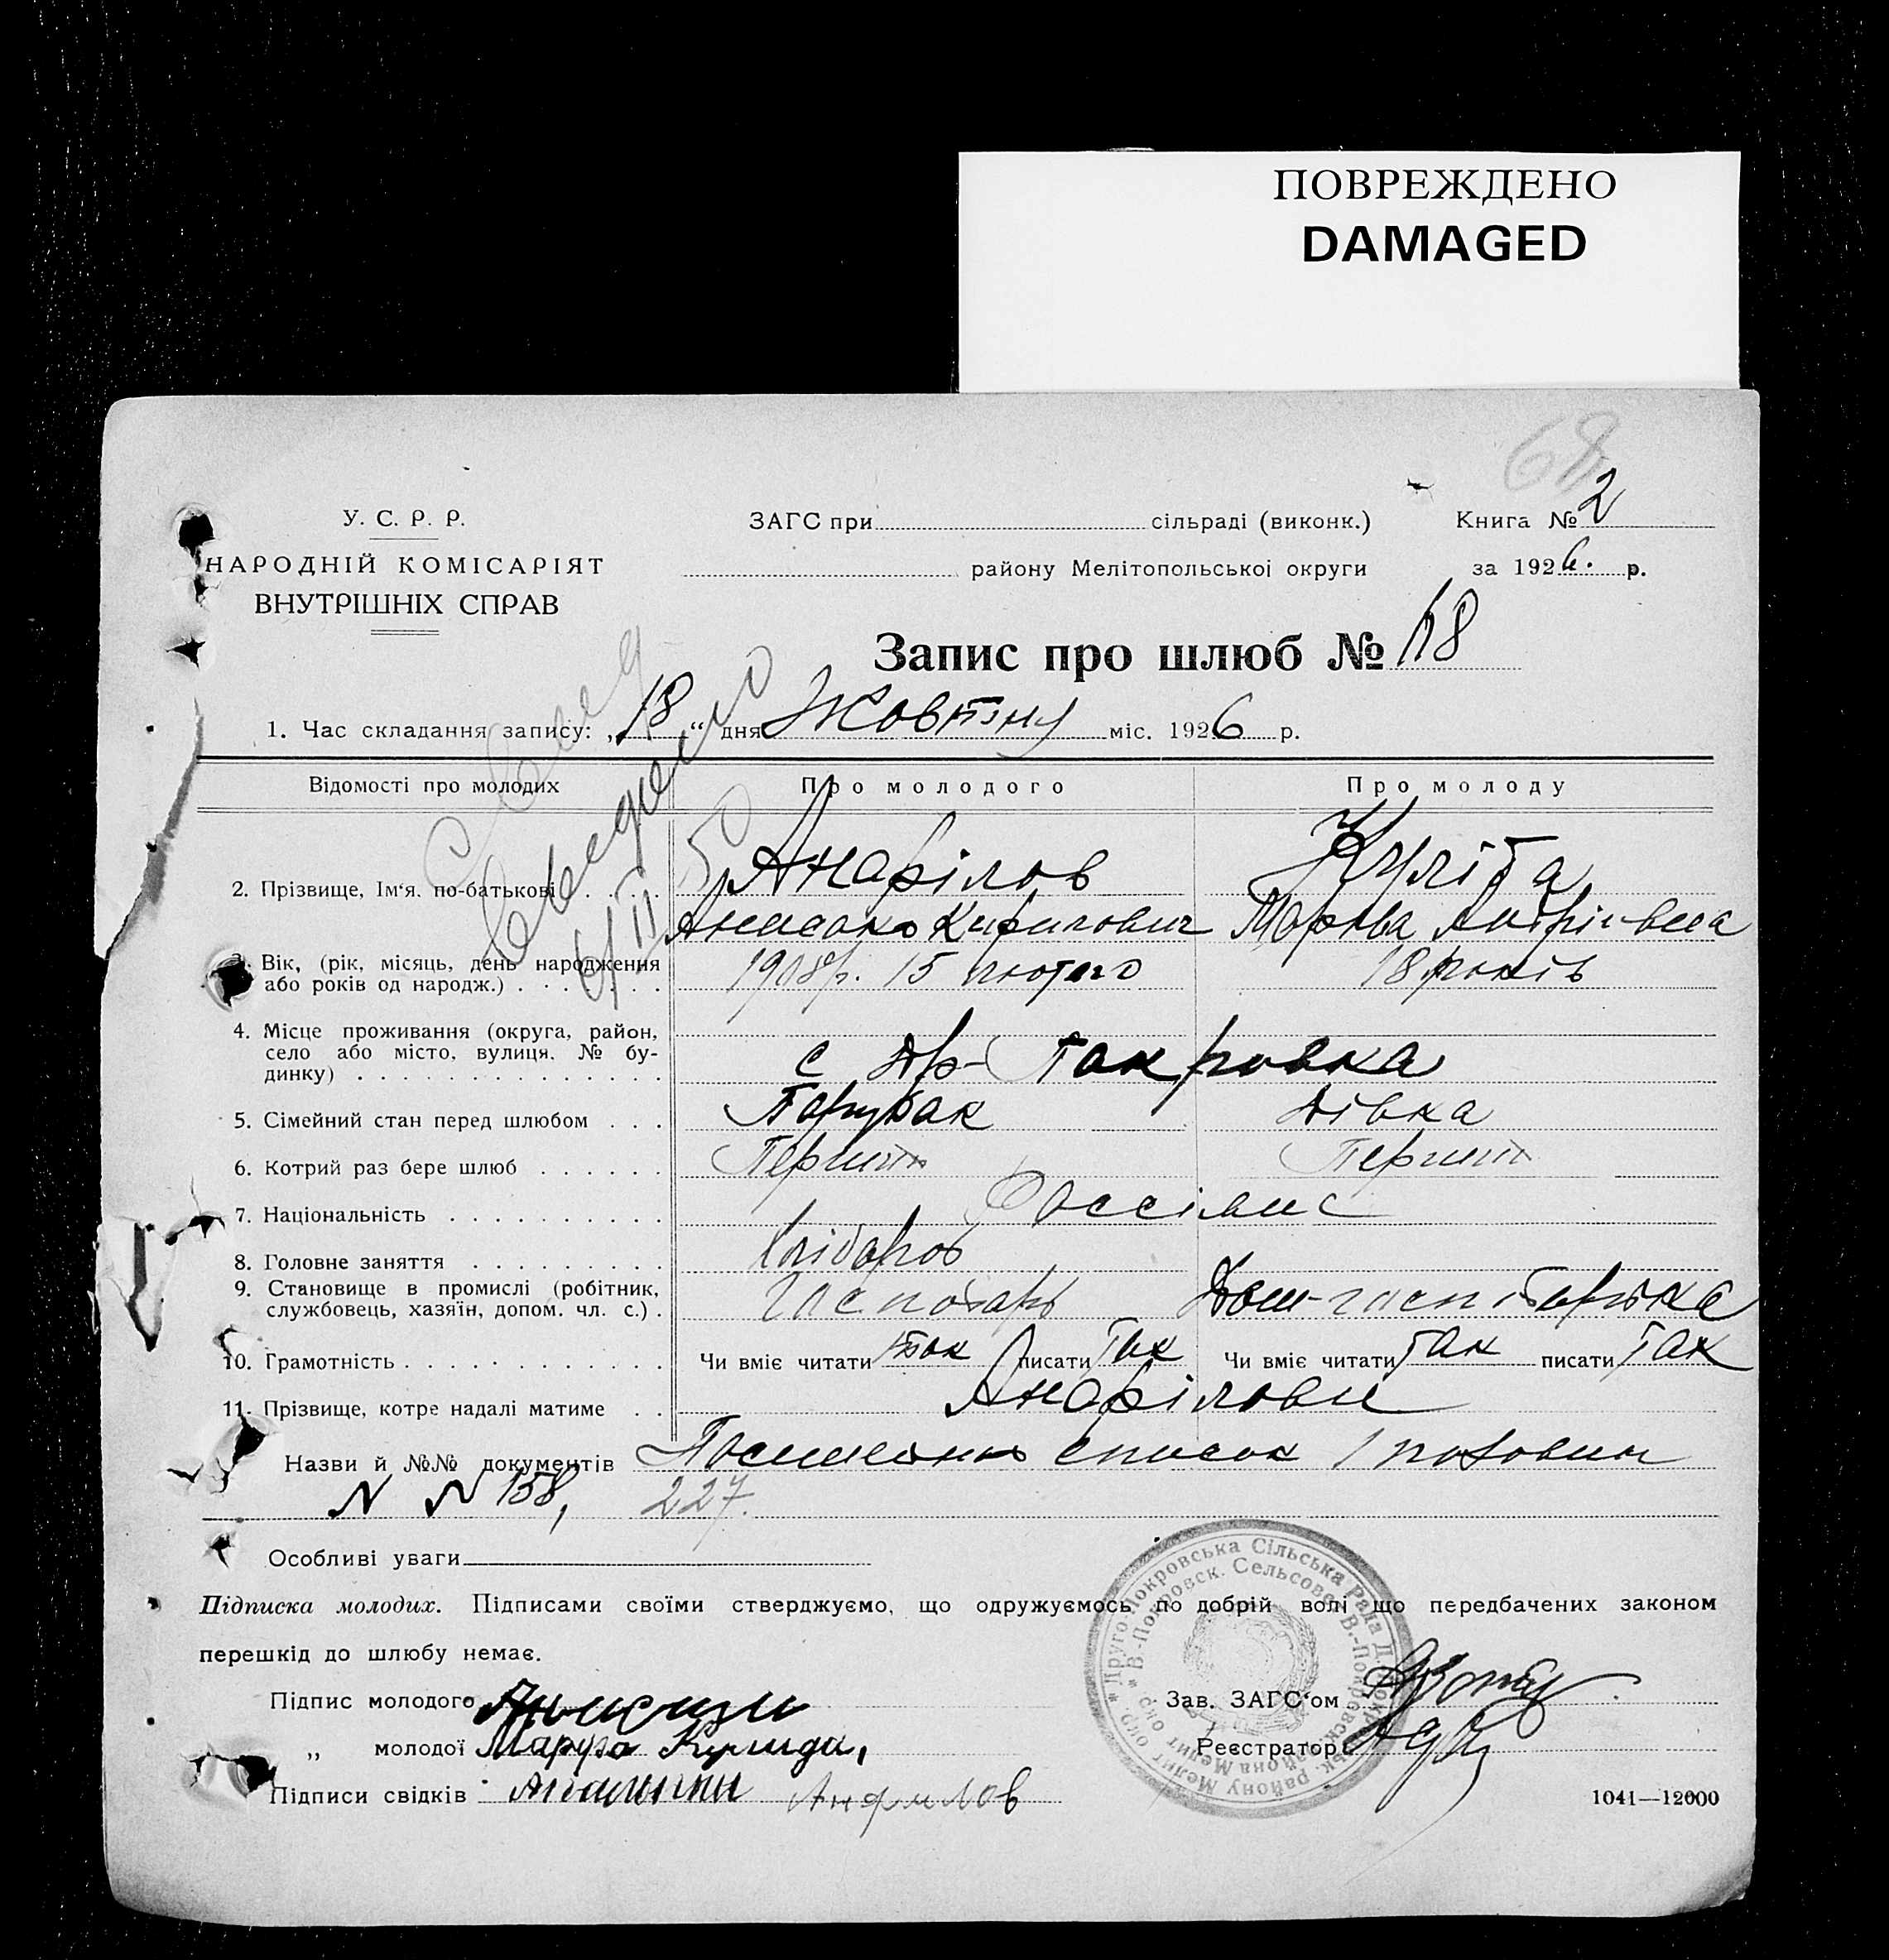 ПОВРЕЖДЕНО
DAMAGED
68
У. С. Р. Р.
НАРОДНІЙ КОМІСАРІЯТ
ВНУТРІШНІХ СПРАВ
ЗАГС при сільраді (виконк.)
Книга № 2
району Мелітопольської округи
за 1926. р.
Запис про шлюб № 68
1. Час складання запису: „18“ дня Жовтня міс. 1926 р.
Відомості про молодих Про молодого Про молоду
2. Прізвище, Ім'я, по-батькові . . . . Анфілов Куліда
Кирилович Марфа Андріівна
3. Вік, (рік, місяць, день народження 1908 р. 15 лютого 18 років
або років од народж.) . . . . . .
4. Місце проживання (округа, район,
село або місто, вулиця, № бу-
динку) . . . . . . . . . . . . . . с Др-Покровка
5. Сімейний стан перед шлюбом . . . Парубак Дівка
6. Котрий раз бере шлюб . . . . . . Перший Перший
7. Національність . . . . . . . . . .
8. Головне заняття . . . . . . . . . Хлібороб
9. Становище в промислі (робітник, Господарь Дом-господарька
службовець, хазяїн, допом. чл. с.) .
10. Грамотність . . . . . . . . . . . . Чи вміє читати так писати так Чи вміє читати так писати так
11. Прізвище, котре надалі матиме . . Анфілови
Назви й №№ документів список
N N 158, 227.
Особливі уваги
Підписка молодих. Підписами своїми стверджуємо, що одружуємось по добрій волі що передбачених законом
перешкід до шлюбу немає.
Підпис молодого
„ молодої Марфа Кулида,
Підписи свідків Анфилов
Зав. ЗАГС'ом
Реєстратор
Друго-Покровська Сільська Рада Д.-Покровськ. району Мелит. окр.
В-Покровск. Сельсовет В.-Покровск. района Мелит. окр.
1041—12000